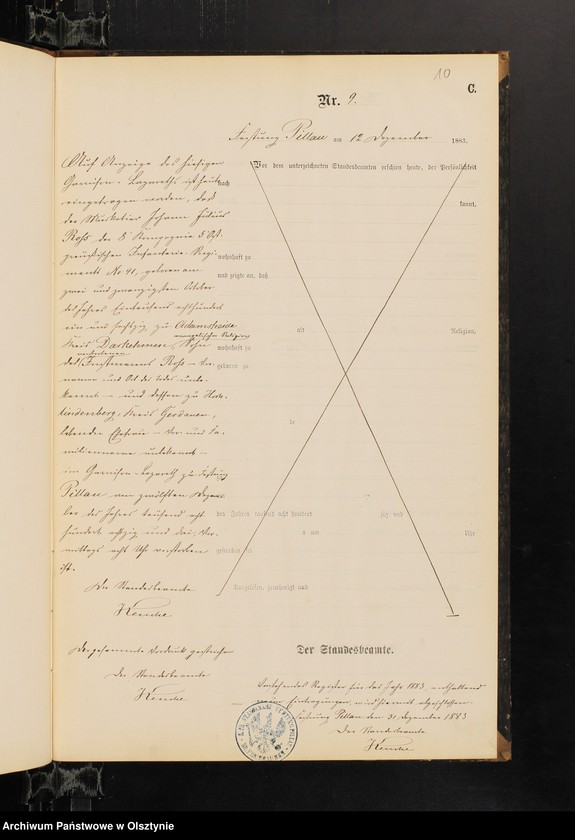 10
C.
Nr. 9.
Festung Pillau am 12 Dezember 1883.
Vor dem unterzeichneten Standesbeamten erschien heute, der Persönlichkeit
nach
kannt,
wohnhaft zu
und zeigte an, daß
alt
Religion,
wohnhaft zu
geboren zu
des Jahres tausend acht hundert
zig und
Uhr
Vorgelesen, genehmigt und
Auf Anzeige des hiesigen
Garnison-Lazareths ist heute
eingetragen worden, daß
der Musketier Johann Julius
Roß der 8 Kompagnie 8 Ost-
preußischen Infanterie-Regi-
ments No 41, geboren am
zwei und zwanzigsten October
des Jahres Eintausend achthundert
ein und sechzig zu Adamsheide
evangelischer Religion
Kreis Darkehmen, Sohn
des verstorbenen Roß - Vor-
name und Ort des Todes unbe-
kannt - und dessen zu
lindenberg, Kreis Gerdauen,
lebender Ehefrau - Vor- und Fa-
milienname unbekannt -
im Garnison-Lazareth zu Festung
Pillau am zwölften Dezem-
ber des Jahres tausend acht
hundert achtzig und drei, Vor-
mittags acht Uhr verstorben
ist.
Der Standesbeamte
Der gesammte Vordruck gestrichen
Der Standesbeamte
Der Standesbeamte.
Vorstehendes Register für das Jahr 1883, enthaltend
neun Eintragungen, wird hiermit abgeschlossen.
Festung Pillau den 31 Dezember 1883
Der Standesbeamte
Archiwum Państwowe w Olsztynie